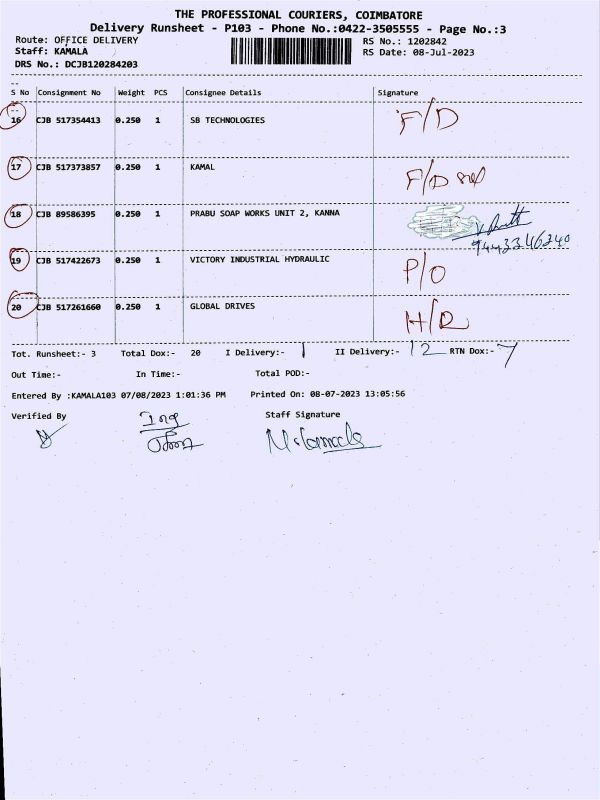 THE PROFESSIONAL COURIERS, COIMBATORE
Delivery Runsheet - P103 - Phone No.:0422-3505555 - Page No.:3
Route: OFFICE DELIVERY RS No.: 1202842
Staff: KAMALA RS Date: 08-Jul-2023
DRS No.: DCJB120284203
S No Consignment No Weight PCS Consignee Details Signature
16 CJB 517354413 0.250 1 SB TECHNOLOGIES F/D
17 CJB 517373857 0.250 1 KAMAL F/D
18 CJB 89586395 0.250 1 PRABU SOAP WORKS UNIT 2, KANNA
9443346240
19 CJB 517422673 0.250 1 VICTORY INDUSTRIAL HYDRAULIC P/O
20 CJB 517261660 0.250 1 GLOBAL DRIVES H/D
Tot. Runsheet:- 3 Total Dox:- 20 I Delivery:- 1 II Delivery:- 12 RTN Dox:- 7
Out Time:- In Time:- Total POD:-
Entered By :KAMALA103 07/08/2023 1:01:36 PM Printed On: 08-07-2023 13:05:56
Verified By Staff Signature